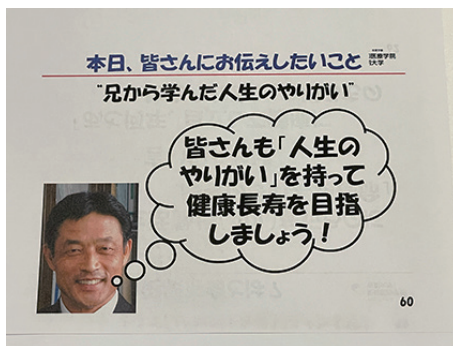 本日、皆さんにお伝えしたいこと
医療学院
大学
"兄から学んだ人生のやりがい"
皆さんも「人生の
やりがい」を持って
健康長寿を目指
しましょう!
60